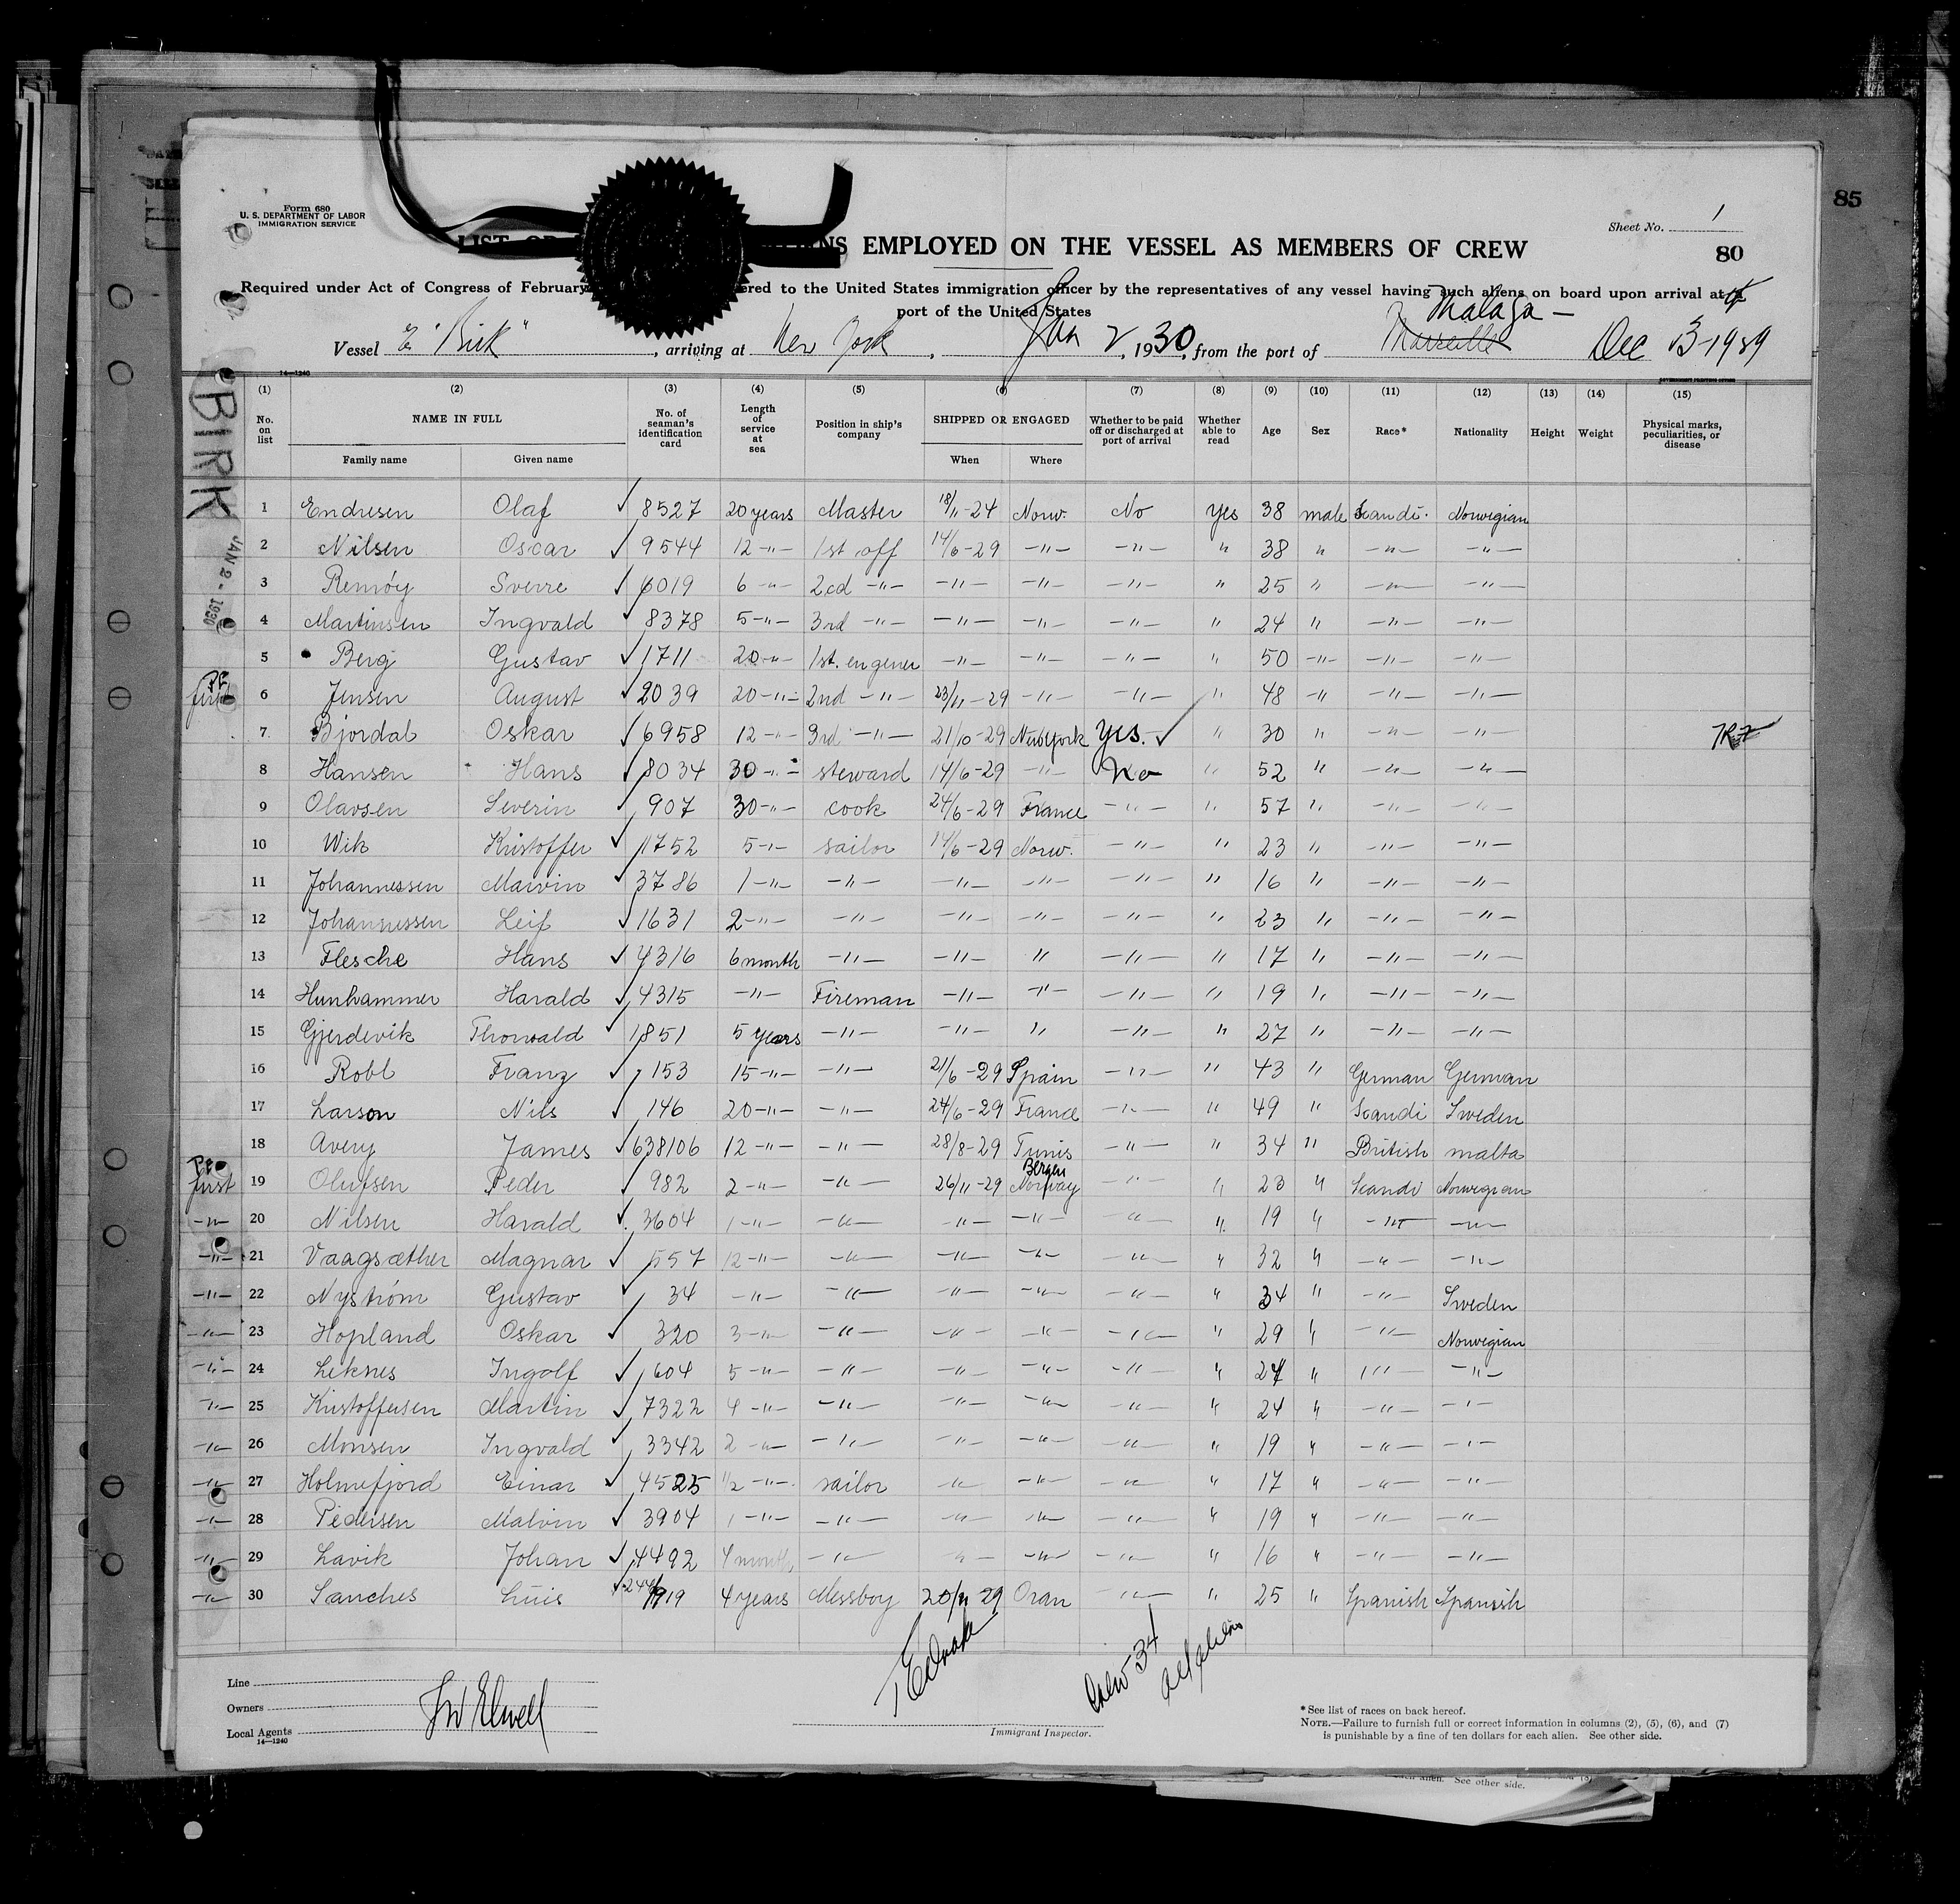 85
Form 680
U. S. DEPARTMENT OF LABOR
IMMIGRATION SERVICE
Sheet No. 1
80
LIST OR EMPLOYED ON THE VESSEL AS MEMBERS OF CREW
Required under Act of Congress of February ered to the United States immigration officer by the representatives of any vessel having such aliens on board upon arrival at a
port of the United States
Malaga —
Vessel "Birk", arriving at New York, Jan 2, 1930, from the port of Marseille Dec 13-1929
14—1240
BIRK
JAN 2 - 1930
(1) (2) (3) (4) (5) (6) (7) (8) (9) (10) (11) (12) (13) (14) (15)
No. on list NAME IN FULL No. of seaman's identification card Length of service at sea Position in ship's company SHIPPED OR ENGAGED Whether to be paid off or discharged at port of arrival Whether able to read Age Sex Race* Nationality Height Weight Physical marks, peculiarities, or disease
Family name Given name When Where
1 Endresen Olaf ✓ 8527 20 years Master 18/11-24 Norw. No Yes 38 male Scandi. Norwegian
2 Nilsen Oscar ✓ 9544 12 -"- 1st off 14/6-29 -"- -"- " 38 " -"- -"-
3 Remöy Sverre ✓ 6019 6 -"- 2cd -"- -"- -"- -"- " 25 " -"- -"-
4 Martinsen Ingvald ✓ 8378 5 -"- 3rd -"- -"- -"- -"- " 24 " -"- -"-
5 Berg Gustav ✓ 1711 20 -"- 1st. engener -"- -"- -"- " 50 -"- -"- -"-
first 6 Jensen August ✓ 2039 20 -"- 2nd -"- 23/11-29 -"- -"- " 48 -"- -"- -"-
7 Bjordal Oskar ✓ 6958 12 -"- 3rd -"- 21/10-29 New York Yes. ✓ " 30 " -"- -"-
8 Hansen Hans ✓ 8034 30 -"- steward 14/6-29 -"- No " 52 " -"- -"-
9 Olavsen Severin ✓ 907 30 -"- cook 24/6-29 France -"- " 57 " -"- -"-
10 Wik Kristoffer ✓ 1752 5 -"- sailor 14/6-29 Norw. -"- " 23 " -"- -"-
11 Johannessen Marvin ✓ 3786 1 -"- -"- -"- -"- -"- " 16 " -"- -"-
12 Johannessen Leif ✓ 1631 2 -"- -"- -"- -"- -"- " 23 " -"- -"-
13 Flesche Hans ✓ 4316 6 month -"- -"- " -"- " 17 " -"- -"-
14 Hunhammer Harald ✓ 4315 -"- Fireman -"- -"- -"- " 19 " -"- -"-
15 Gjerdevik Thorwald ✓ 1851 5 years -"- -"- " -"- " 27 " -"- -"-
16 Robl Franz ✓ 153 15 -"- -"- 21/6-29 Spain -"- " 43 " German German
17 Larson Nils ✓ 146 20 -"- -"- 24/6-29 France -"- " 49 " Scandi Sweden
18 Avery James ✓ 638106 12 -"- -"- 28/8-29 Tunis -"- " 34 " British malta
Bergen
first 19 Olufsen Peder ✓ 982 2 -"- -"- 26/11-29 Norway -"- " 23 " Scandi Norwegian
-"- 20 Nilsen Harald ✓ 3604 1 -"- -"- -"- -"- -"- " 19 " -"- -"-
-"- 21 Vaagsæther Magnar ✓ 557 12 -"- -"- -"- -"- -"- " 32 " -"- -"-
-"- 22 Nyström Gustav ✓ 34 -"- -"- -"- -"- -"- " 34 " -"- Sweden
-"- 23 Hopland Oskar ✓ 320 3 -"- -"- -"- -"- -"- " 29 " -"- Norwegian
-"- 24 Leknes Ingolf ✓ 604 5 -"- -"- -"- -"- -"- " 24 " -"- -"-
-"- 25 Kristoffersen Martin ✓ 7322 4 -"- -"- -"- -"- -"- " 24 " -"- -"-
-"- 26 Monsen Ingvald ✓ 3342 2 -"- -"- -"- -"- -"- " 19 " -"- -"-
-"- 27 Holmefjord Einar ✓ 4525 1/2 -"- sailor -"- -"- -"- " 17 " -"- -"-
-"- 28 Pedersen Malvin ✓ 3904 1 -"- -"- -"- -"- -"- " 19 " -"- -"-
-"- 29 Lavik Johan ✓ 4492 4 month -"- -"- -"- -"- " 16 " -"- -"-
-"- 30 Sanches Luis 4 years Messboy 20/11 29 Oran -"- " 25 " Spanish Spanish
Line
Owners
Local Agents
14—1240
Immigrant Inspector.
Crew 34
all aliens
* See list of races on back hereof.
NOTE.—Failure to furnish full or correct information in columns (2), (5), (6), and (7)
is punishable by a fine of ten dollars for each alien. See other side.
See other side.